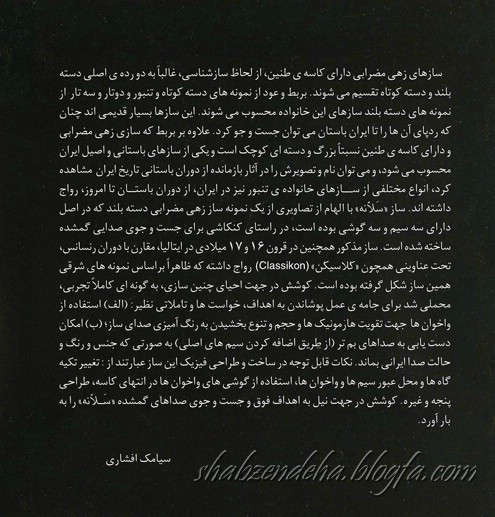 سازهای زهی مضرابی دارای کاسه ی طنین، از لحاظ سازشناسی، غالباً به دو رده ی اصلی دسته
بلند و دسته کوتاه تقسیم می شوند. بربط و عود از نمونه های دسته کوتاه و تنبور و دوتار و سه تار از
نمونه های دسته بلند سازهای این خانواده محسوب می شوند. این سازها بسیار قدیمی اند چنان
که ردپای آن ها را تا ایران باستان می توان جست و جو کرد. علاوه بر بربط که سازی زهی مضرابی
و دارای کاسه ی طنین نسبتاً بزرگ و دسته ای کوچک است و یکی از سازهای باستانی و اصیل ایران
محسوب می شود، و می توان نام و تصویرش را در آثار بازمانده از دوران باستانی تاریخ ایران مشاهده
کرد، انواع مختلفی از سازهای خانواده ی تنبور نیز در ایران، از دوران باستان تا امروز، رواج
داشته اند. ساز «سَلانه» با الهام از تصاویری از یک نمونه ساز زهی مضرابی دسته بلند که در اصل
دارای سه سیم و سه گوشی بوده است، در راستای کنکاشی برای جست و جوی صدایی گمشده
ساخته شده است. ساز مذکور همچنین در قرون ۱۶ و ۱۷ میلادی در ایتالیا، مقارن با دوران رنسانس،
تحت عناوینی همچون «کلاسیکن» (Classikon) رواج داشته که ظاهراً براساس نمونه های شرقی
همین ساز شکل گرفته بوده است. کوشش در جهت احیای چنین سازی، به گونه ای کاملاً تجربی،
محملی شد برای جامه ی عمل پوشاندن به اهداف، خواست ها و تاملاتی نظیر: (الف) استفاده از
واخوان ها جهت تقویت هارمونیک ها و حجم و تنوع بخشیدن به رنگ آمیزی صدای ساز؛ (ب) امکان
دست یابی به صداهای بم تر (از طریق اضافه کردن سیم های اصلی) به صورتی که جنس و رنگ و
حالت صدا ایرانی بماند. نکات قابل توجه در ساخت و طراحی فیزیک این ساز عبارتند از : تغییر تکیه
گاه ها و محل عبور سیم ها و واخوان ها، استفاده از گوشی های واخوان ها در انتهای کاسه، طراحی
پنجه و غیره. کوشش در جهت نیل به اهداف فوق و جست و جوی صداهای گمشده «سَلانه» را به
بار آورد.
سیامک افشاری
shabzendeha.blogfa.com